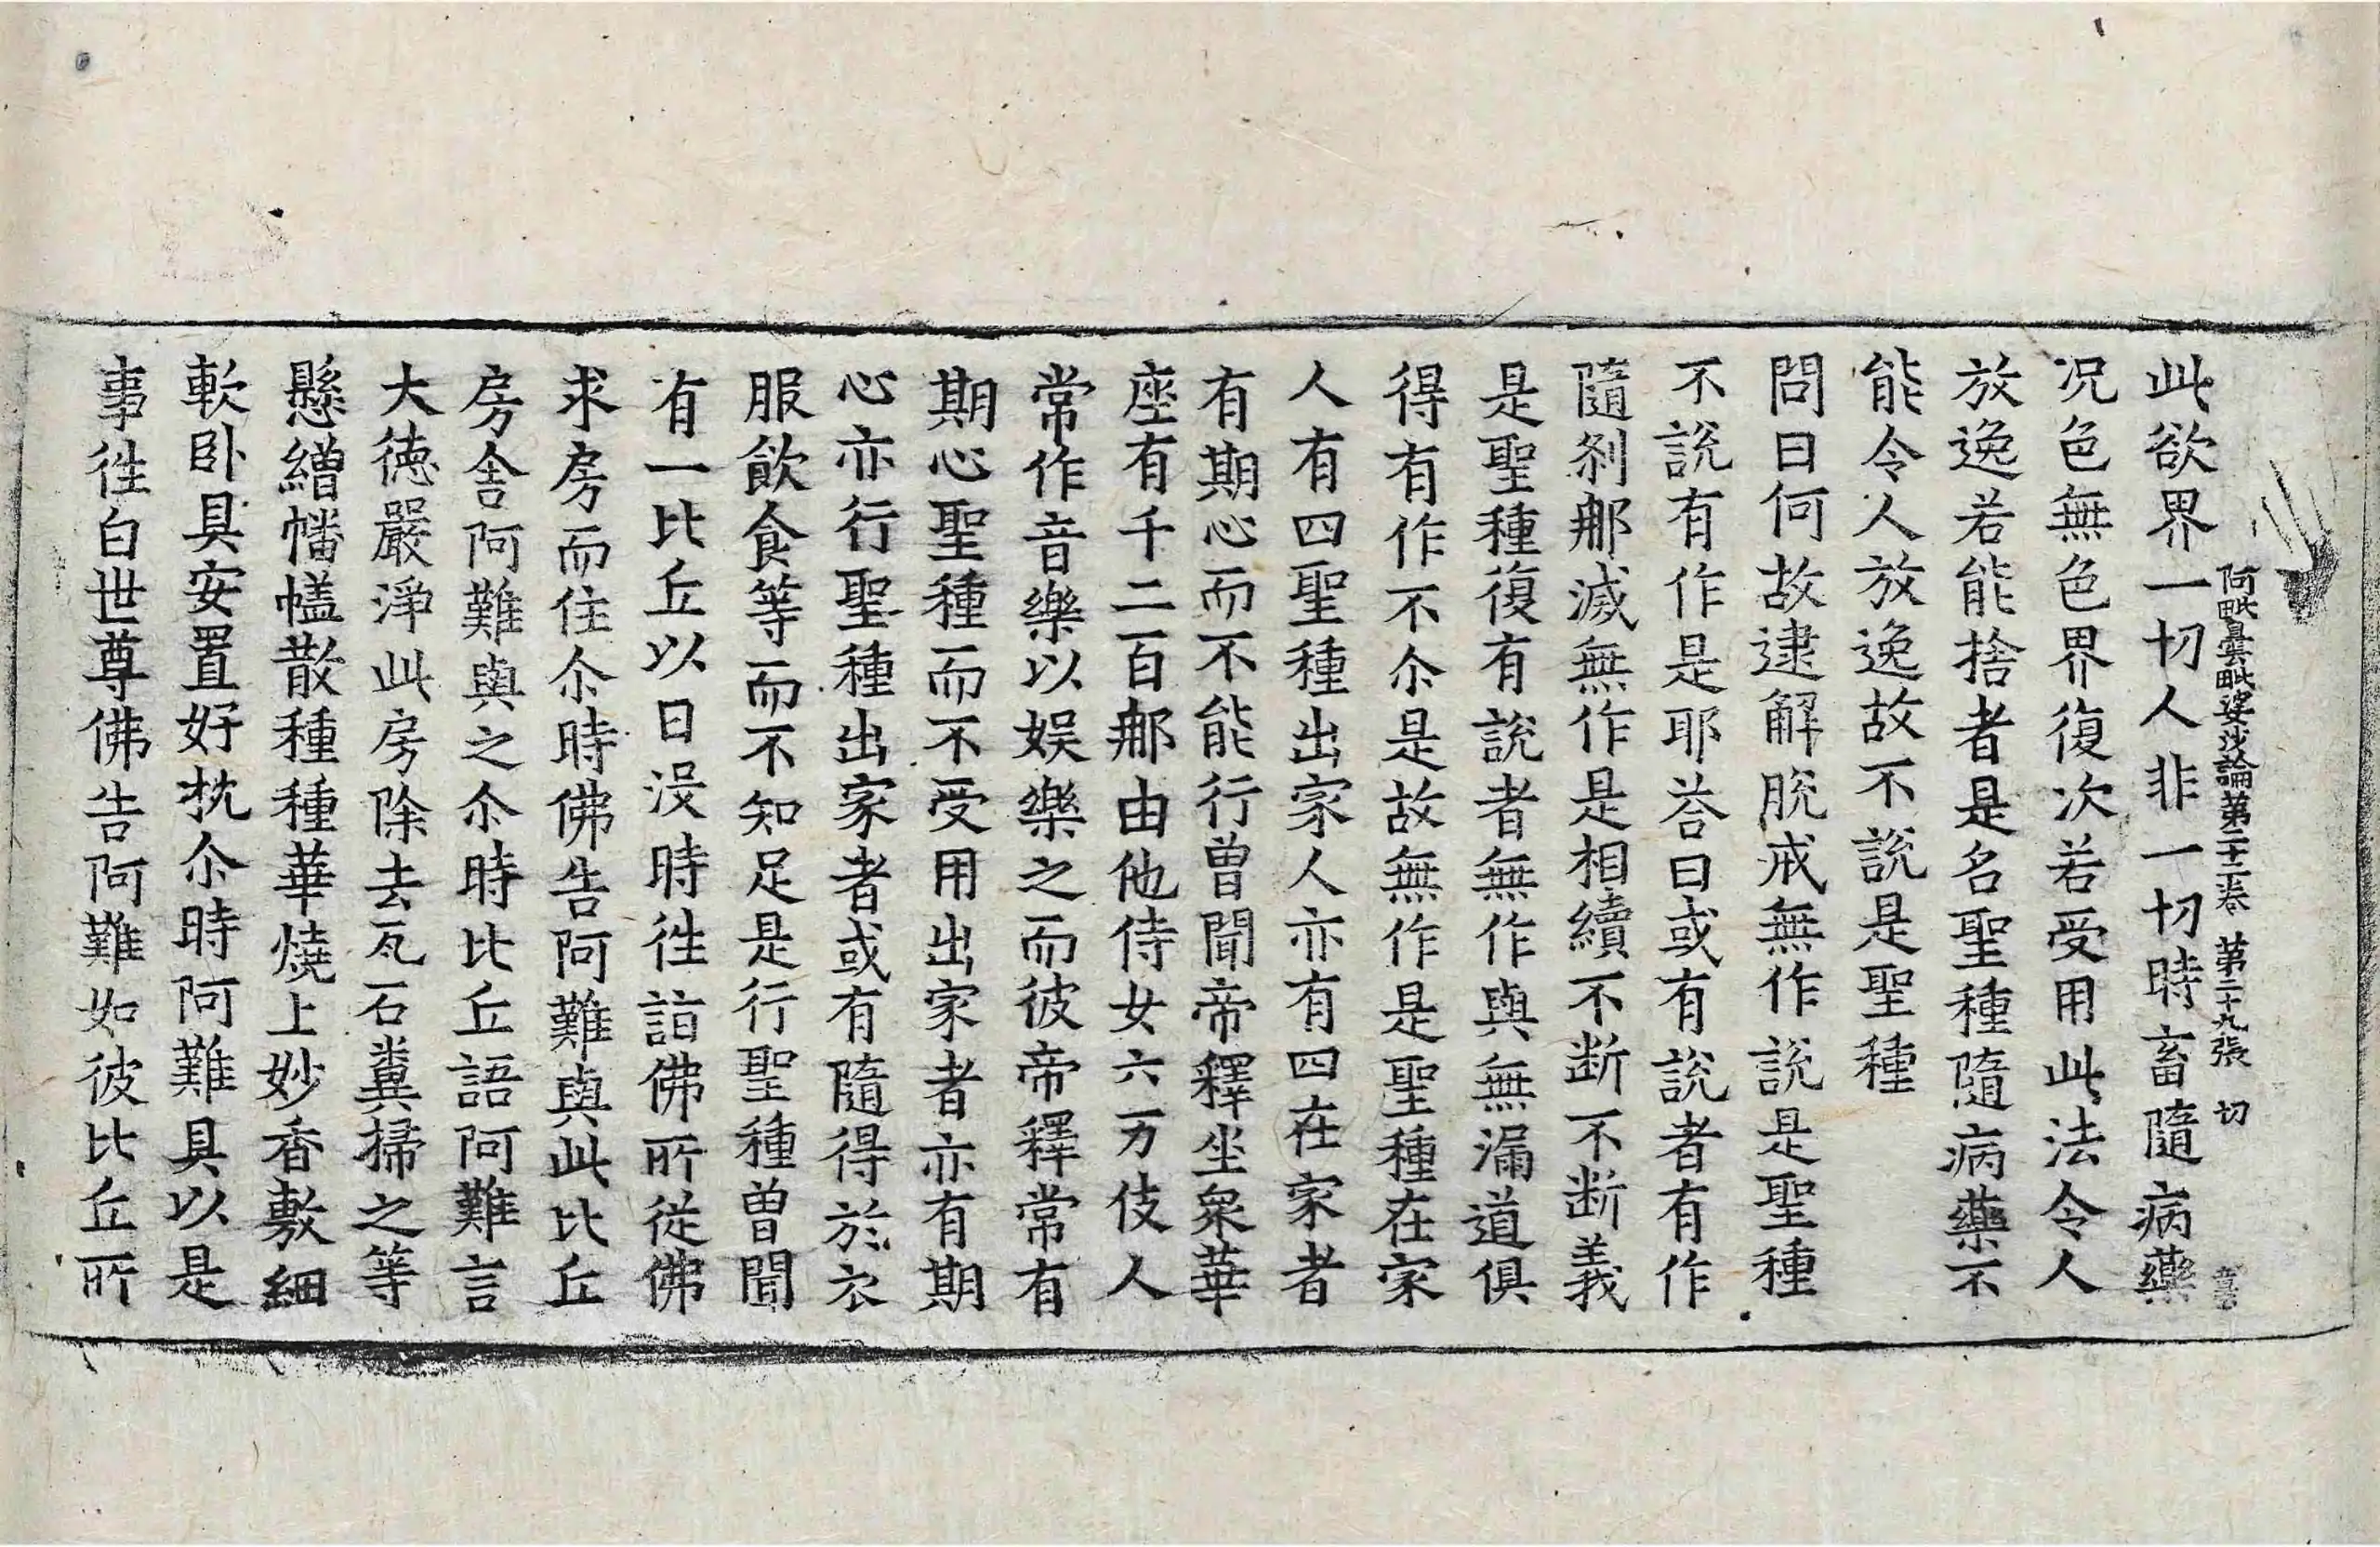 阿毗曇毗婆沙論第二十二卷 第二十九張 切
此欲界一切人非一切時畜隨病藥
况色無色界復次若受用此法令人
放逸若能捨者是名聖種隨病藥不
能令人放逸故不說是聖種
問曰何故逮解脫戒無作說是聖種
不說有作是耶荅曰或有說者有作
隨刹那滅無作是相續不断不断義
是聖種復有說者無作與無漏道俱
得有作不尒是故無作是聖種在家
人有四聖種出家人亦有四在家者
有期心而不能行曾聞帝釋坐衆華
座有千二百那由他侍女六万伎人
常作音樂以娱樂之而彼帝釋常有
期心聖種而不受用出家者亦有期
心亦行聖種出家者或有隨得於衣
服飲食等而不知足是行聖種曾聞
有一比丘以日没時徃詣佛所從佛
求房而住尒時佛告阿難與此比丘
房舍阿難與之尒時比丘語阿難言
大德嚴淨此房除去瓦石糞掃之等
懸繒幡幰散種種華燒上妙香敷細
軟卧具安置好枕尒時阿難具以是
事徃白世尊佛告阿難如彼比丘所